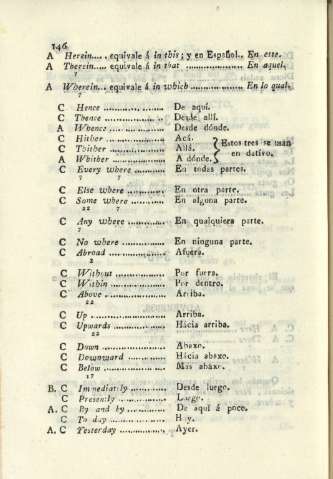 146
A Herein..... equivale á in this; y en Español.. En este.
A Therein..... equivale á in that .................... En aquel.
7
A Wherein... equivale á in which .................. En lo qual.
7
C Hence .................... De aquí.
C Thence .................... Desde allí.
A Whence .................... Desde dónde.
C Hither .................... Acá.
C Thither .................... Allá. } Estos tres se usan en dativo.
A Whither .................... A dónde.
C Every where .................... En todas partes.
7 7
C Else where .................... En otra parte.
C Some where .................... En alguna parte.
22 7
C Any where .................... En qualquiera parte.
7
C No where .................... En ninguna parte.
C Abroad .................... Afuera.
2
C Without .................... Por fuera.
C Within .................... Por dentro.
C Above .................... Arriba.
22
C Up .................... Arriba.
C Upwards .................... Hácia arriba.
22
C Down .................... Abaxo.
C Downward .................... Hácia abaxo.
C Below .................... Mas abaxo.
17
B. C Immediatly .................... Desde luego.
C Presently .................... Luego.
A. C By and by .................... De aquí á poco.
C To day .................... Hoy.
A. C Yesterday .................... Ayer.